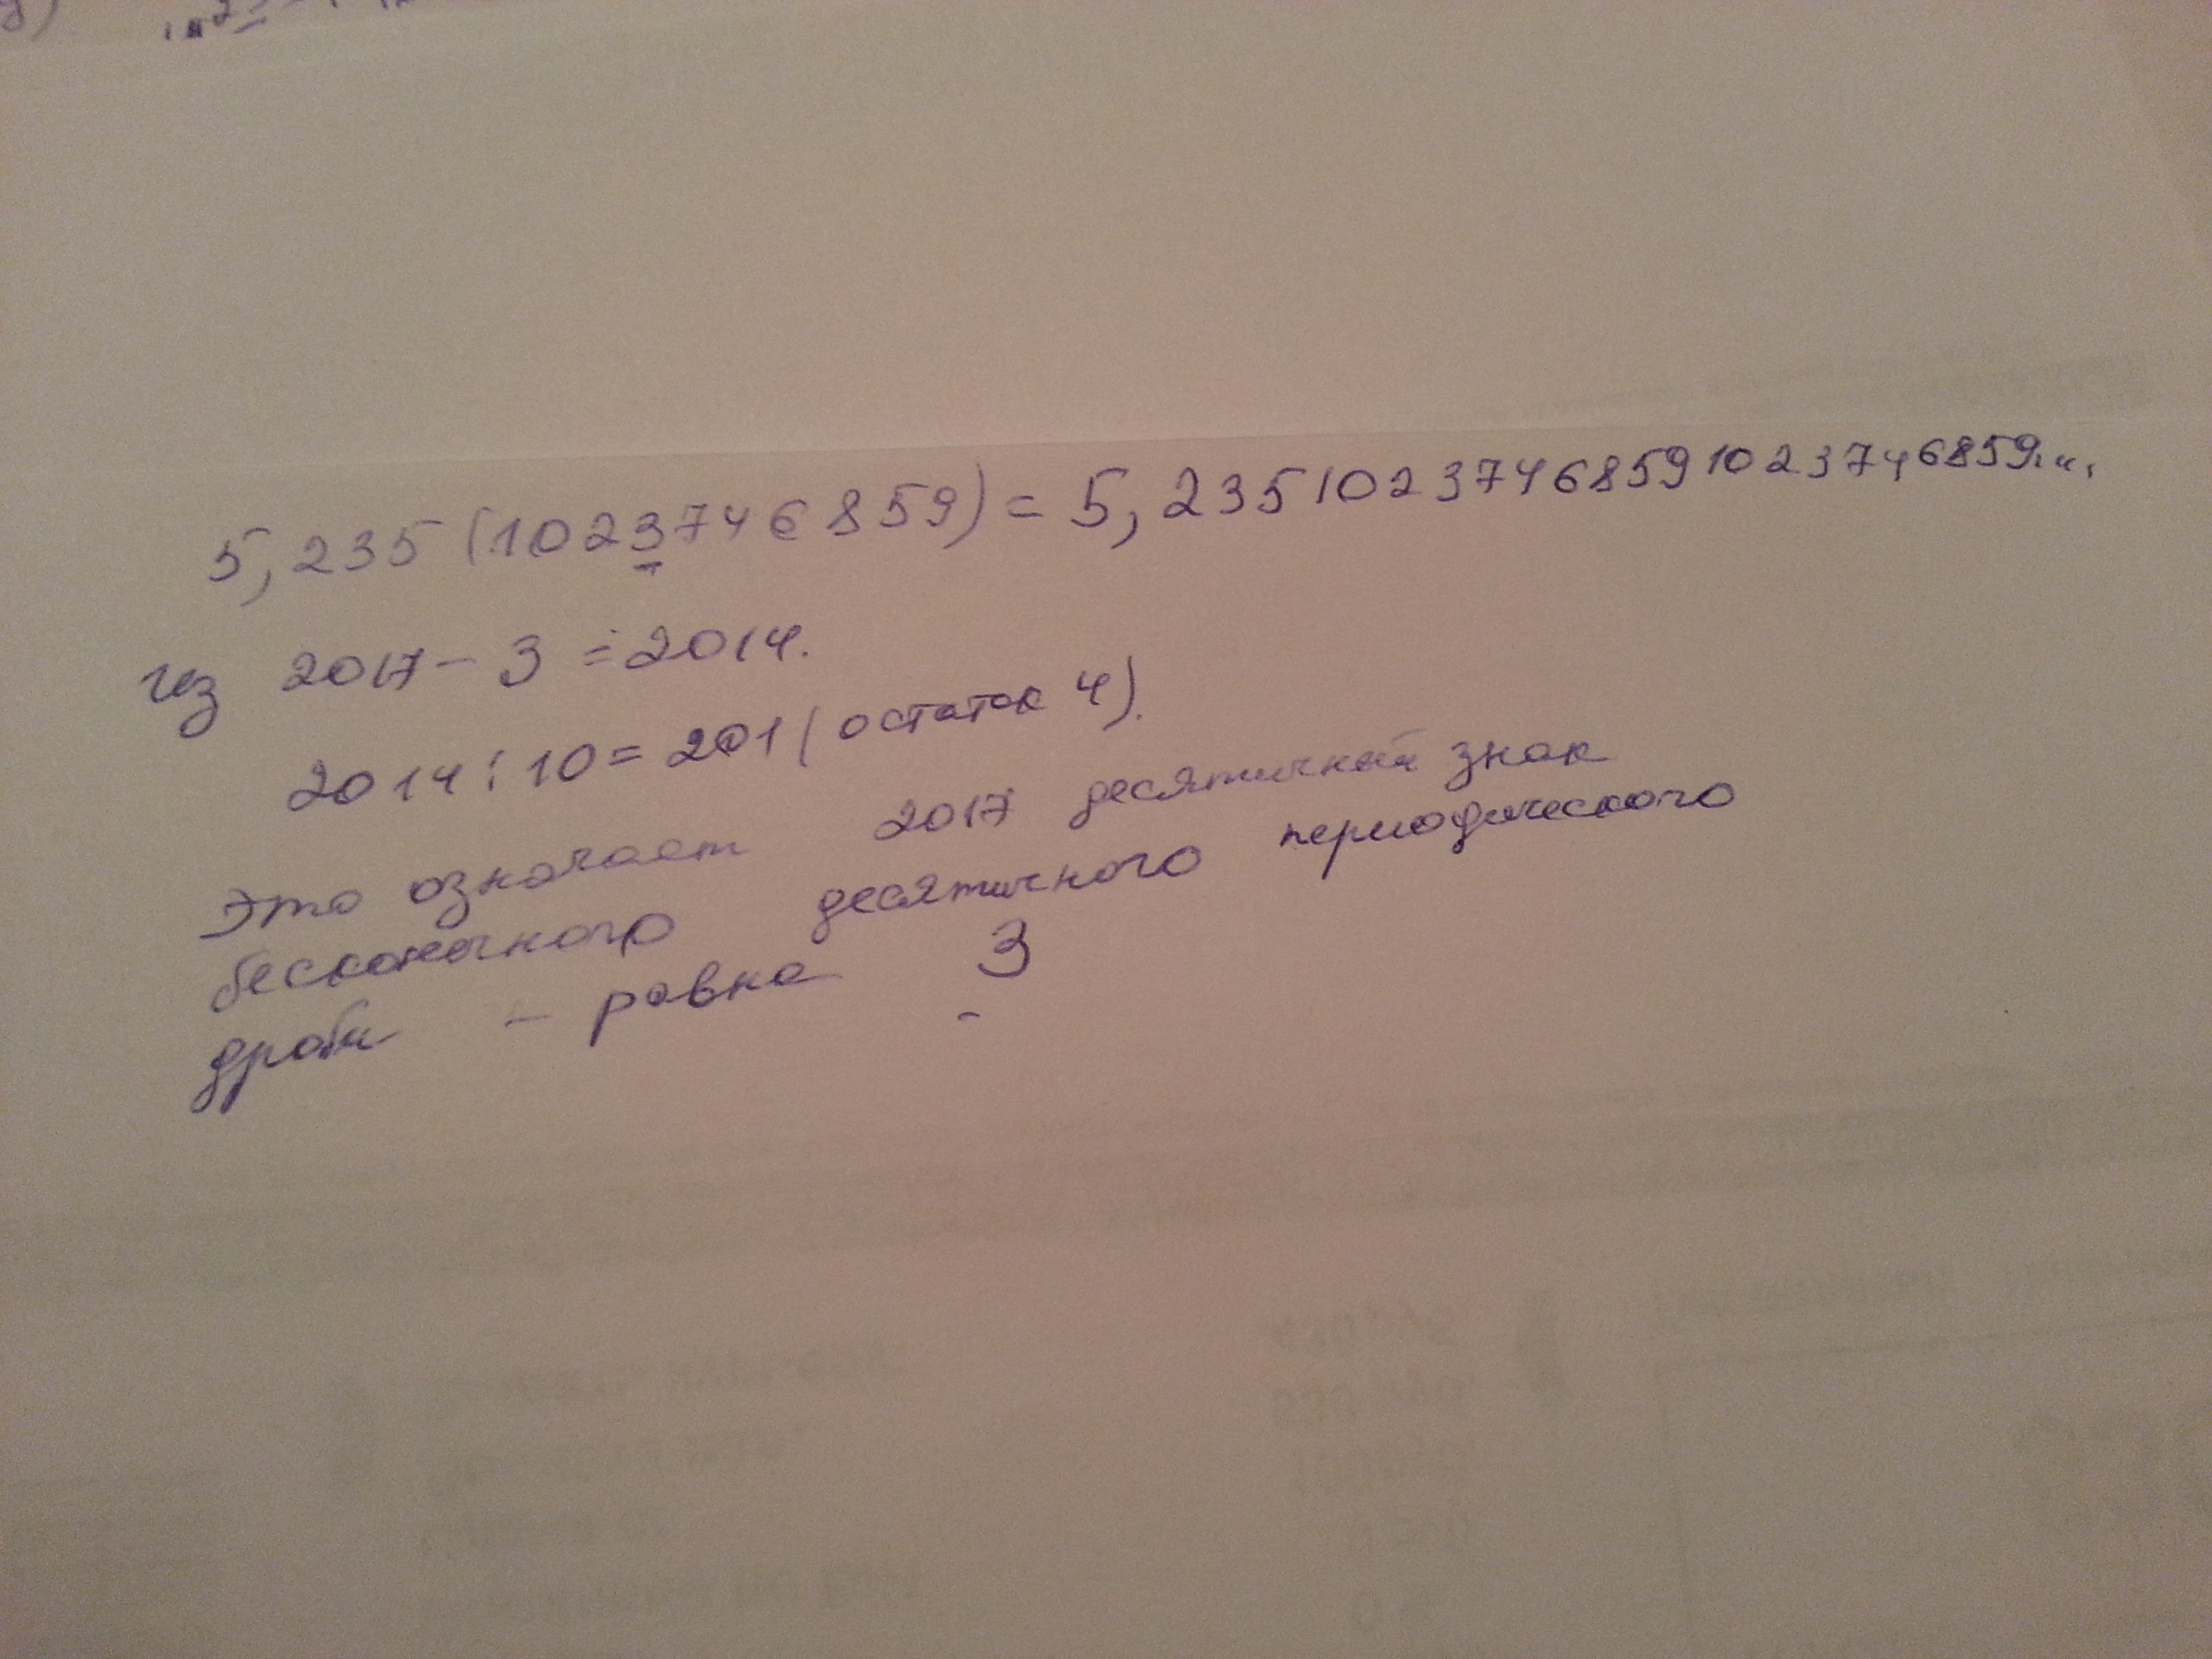 5,235(1023746859) = 5,23510237468591023746859...
Из 2017 - 3 = 2014.
2014 : 10 = 201 (остаток 4).
Это означает 2017 десятичный знак
бесконечного десятичного периодического
дроби - равна 3